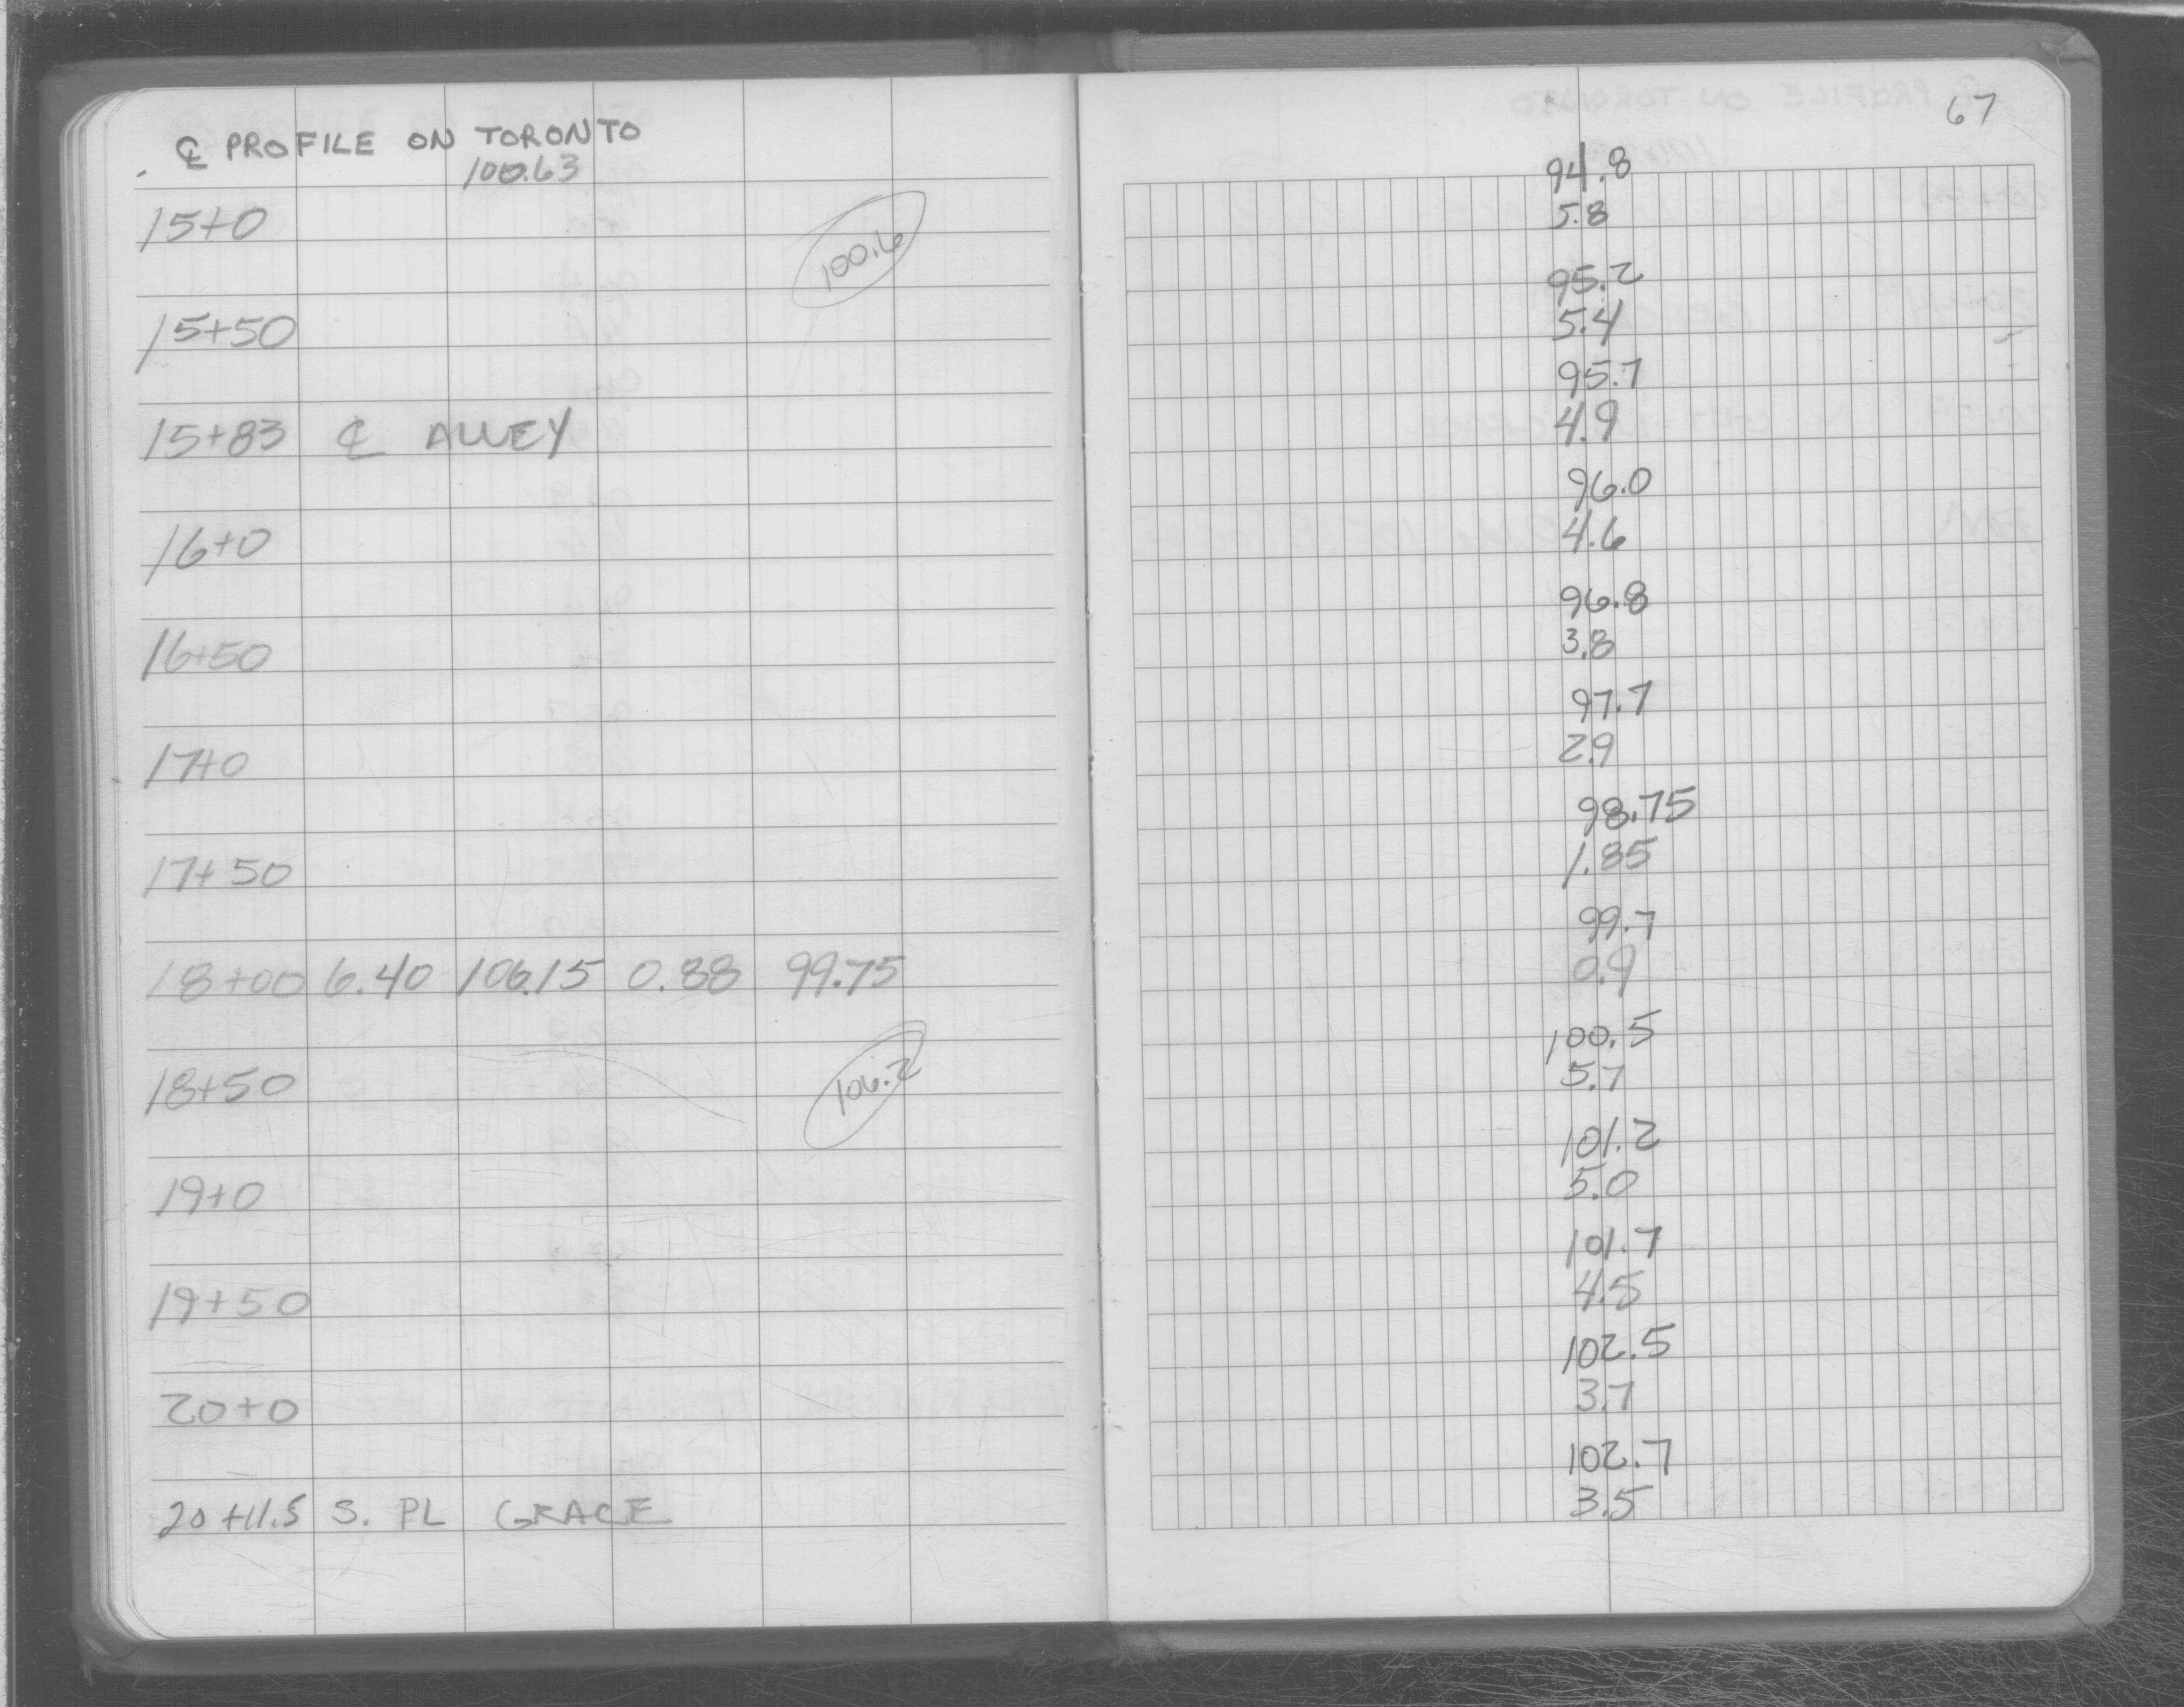 ℄ PROFILE ON TORONTO
100.63
15+0
100.6
15+50
15+83 ℄ ALLEY
16+0
16+50
17+0
17+50
18+00 6.40 106.15 0.88 99.75
18+50
106.2
19+0
19+50
20+0
20+11.5 S. PL GRACE
67
94.8
5.8
95.2
5.4
95.7
4.9
96.0
4.6
96.8
3.8
97.7
2.9
98.75
1.85
99.7
0.9
100.5
5.7
101.2
5.0
101.7
4.5
102.5
3.7
102.7
3.5